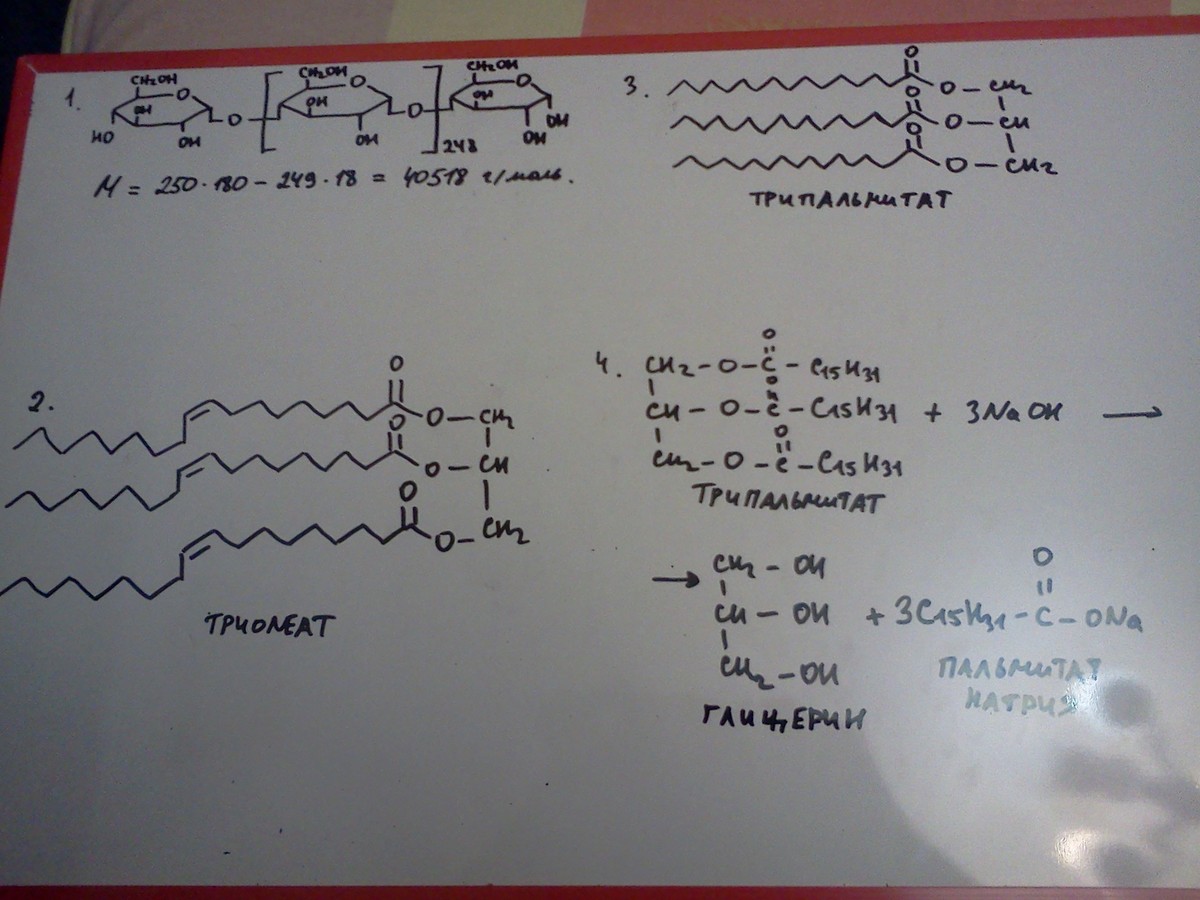 1.
CH₂OH CH₂OH CH₂OH
O O O
OH OH OH
HO O O OH
OH OH OH
248
M = 250·180 – 249·18 = 40518 г/моль.
3.
O
O – CH₂
O
O – CH
O
O – CH₂
ТРИПАЛЬМИТАТ
2.
O
O – CH₂
O
O – CH
O
O – CH₂
ТРИОЛЕАТ
4.
O
CH₂ – O – C – C₁₅H₃₁
O
CH – O – C – C₁₅H₃₁ + 3NaOH →
O
CH₂ – O – C – C₁₅H₃₁
ТРИПАЛЬМИТАТ
→ CH₂ – OH
O
CH – OH + 3C₁₅H₃₁ – C – ONa
CH₂ – OH
ГЛИЦЕРИН
ПАЛЬМИТАТ
НАТРИЯ